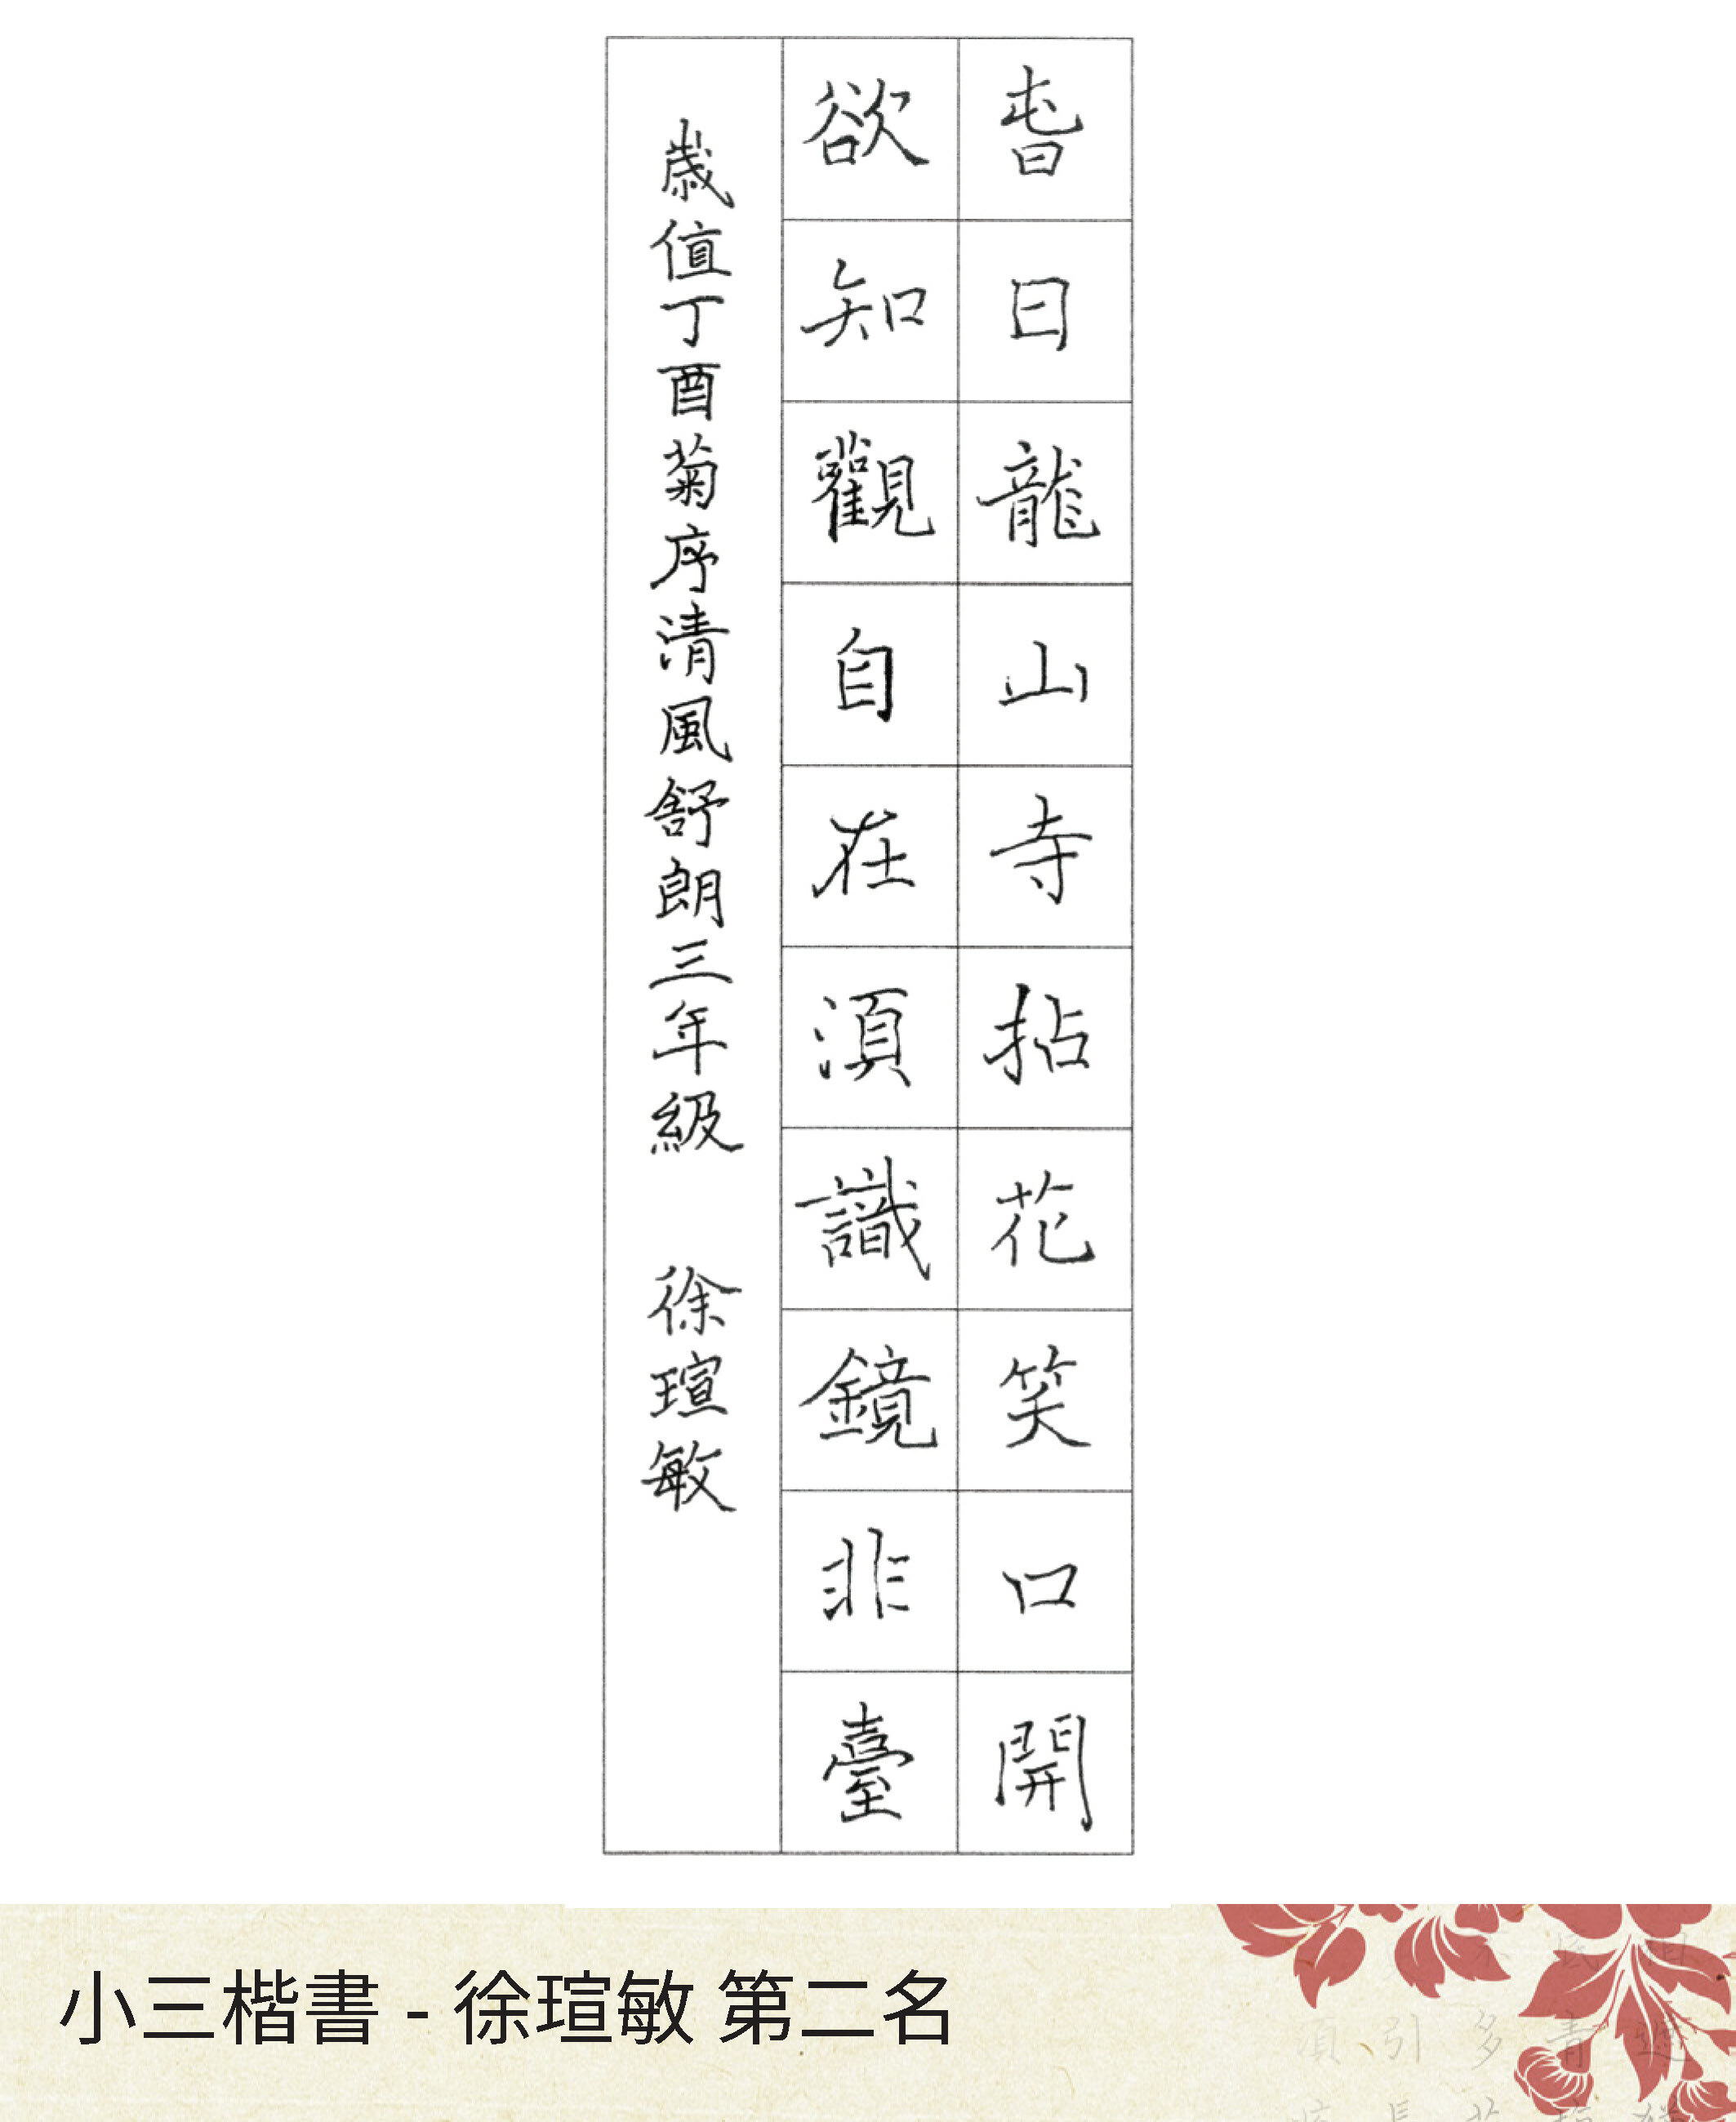 旾日龍山寺拈花笑口開
欲知觀自在須識鏡非臺
歲值丁酉菊序清風舒朗三年級 徐瑄敏
小三楷書 - 徐瑄敏 第二名